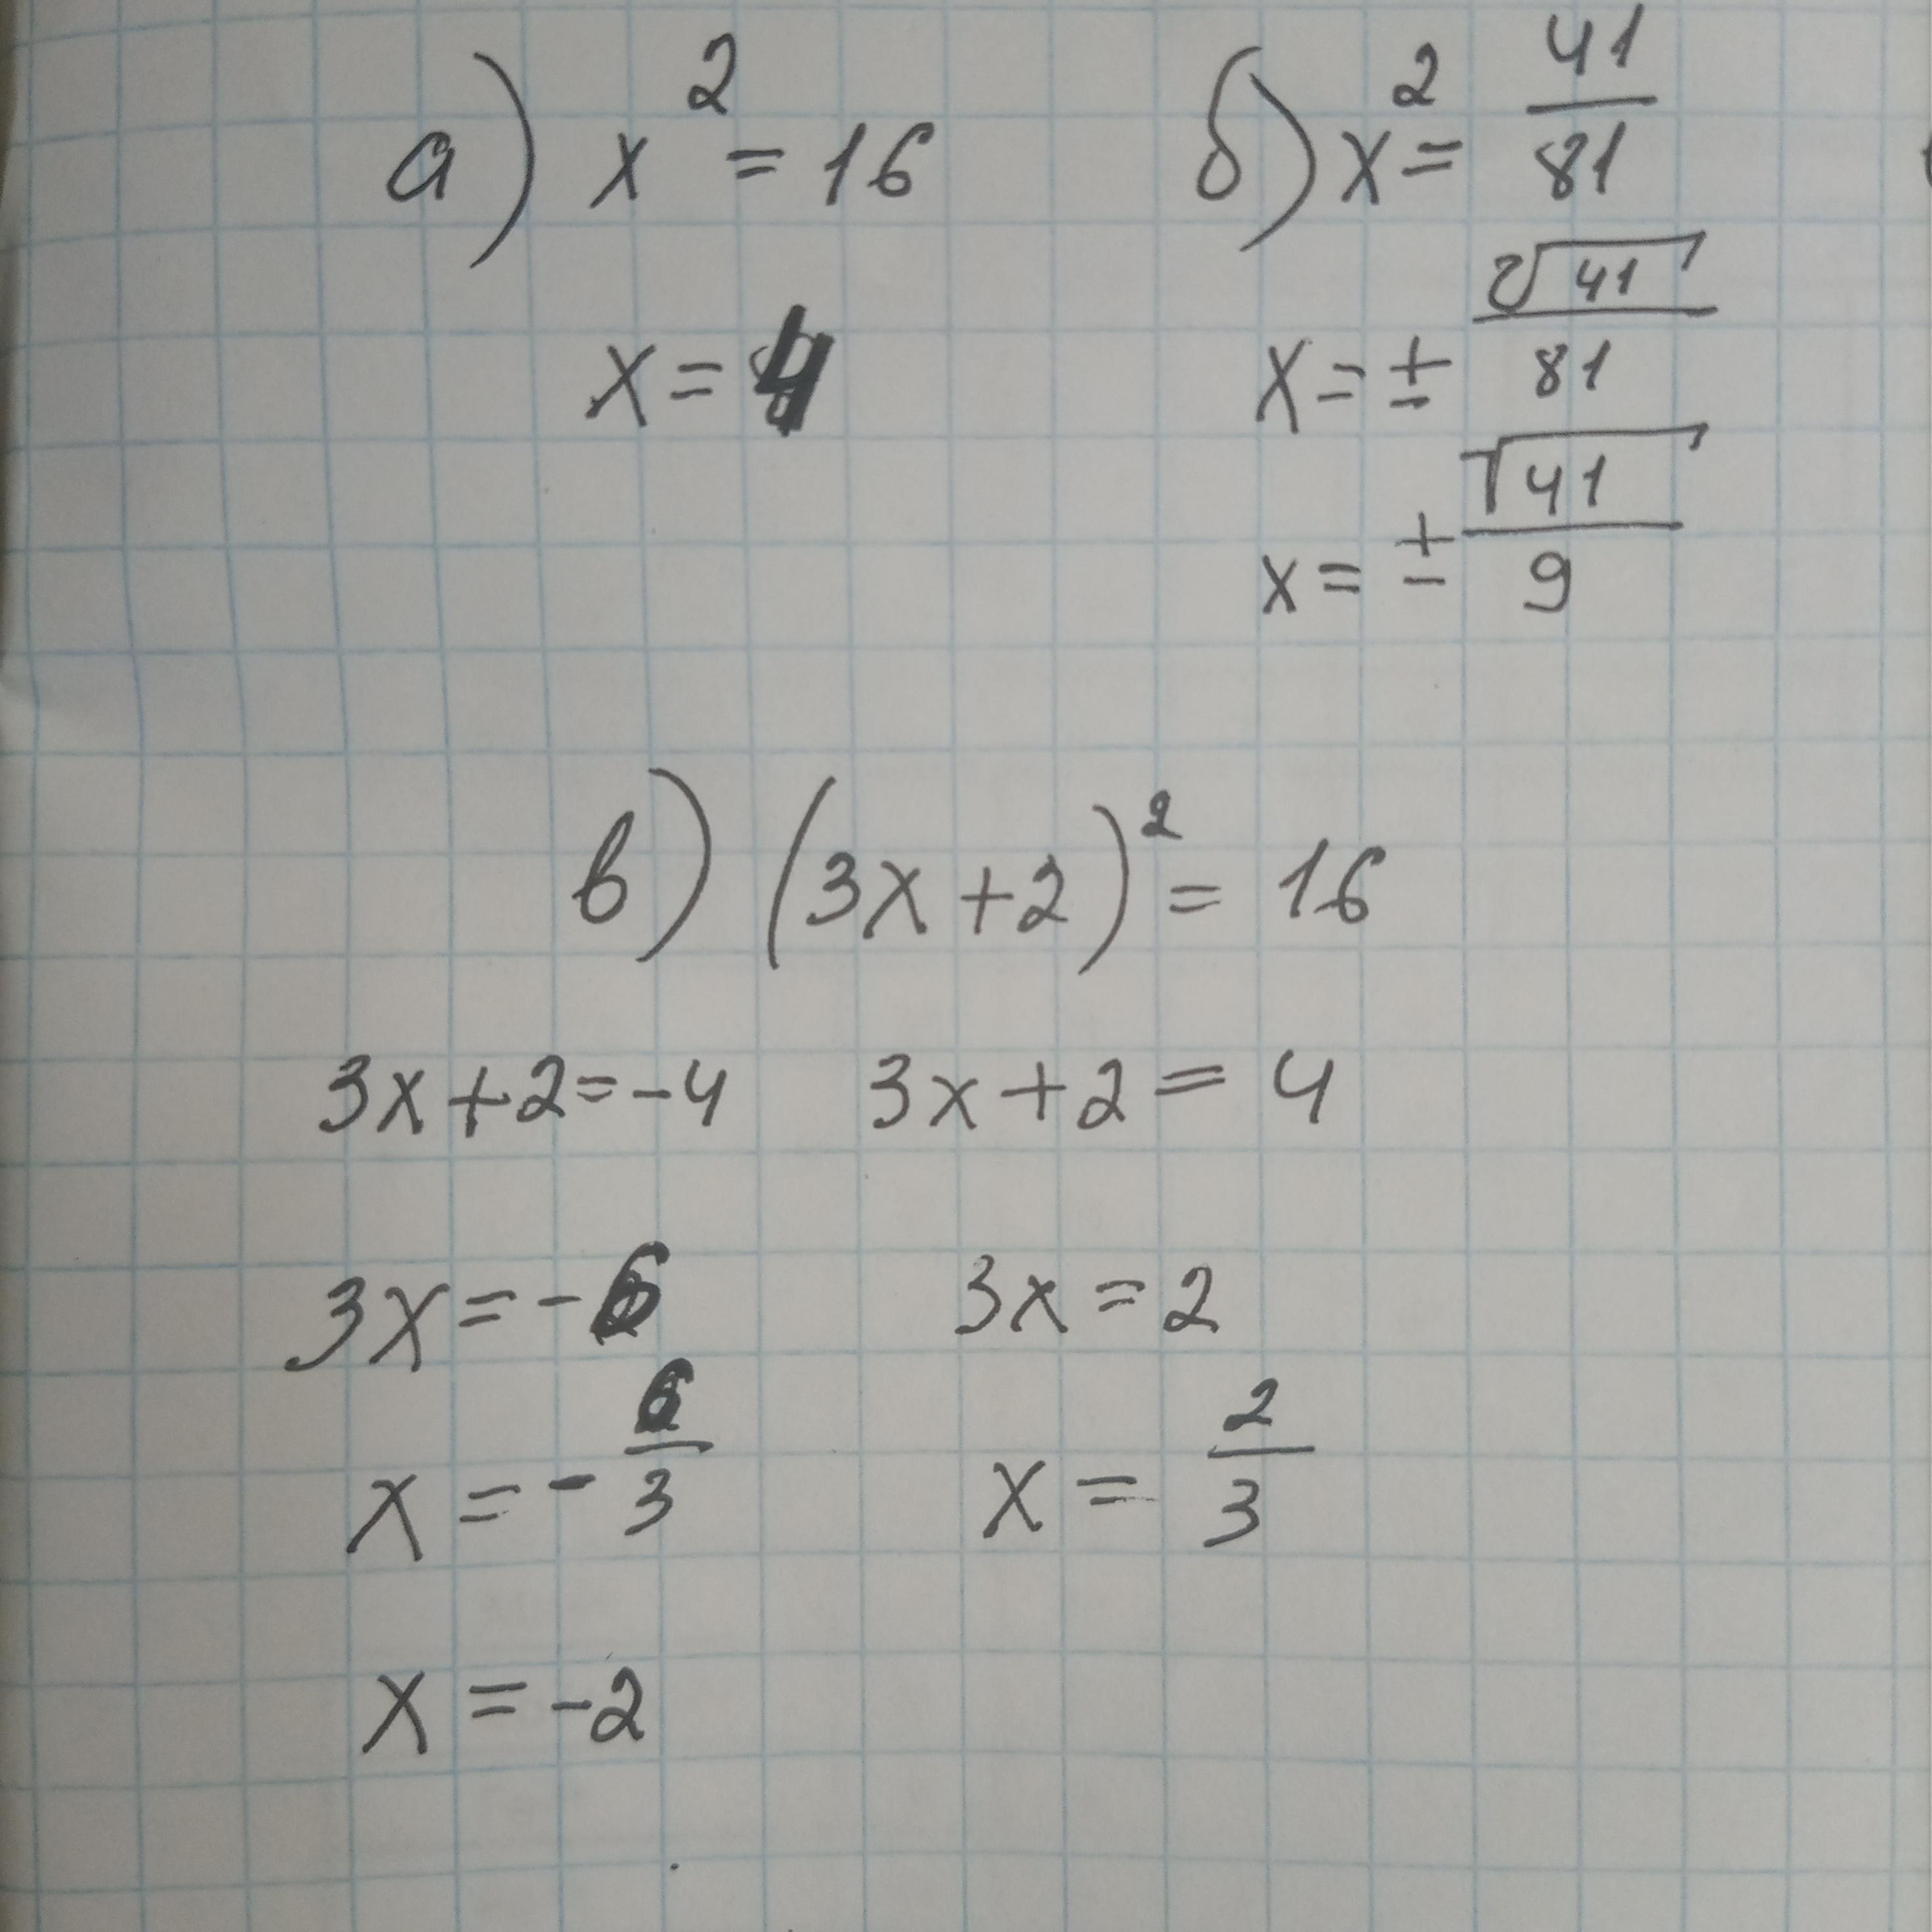 а) x² = 16
x = 4
б) x² = 41/81
x = ± ²√41/81
x = ± √41/9
в) (3x+2)² = 16
3x+2=-4 3x+2=4
3x=-6 3x=2
x=-6/3 x=2/3
x=-2